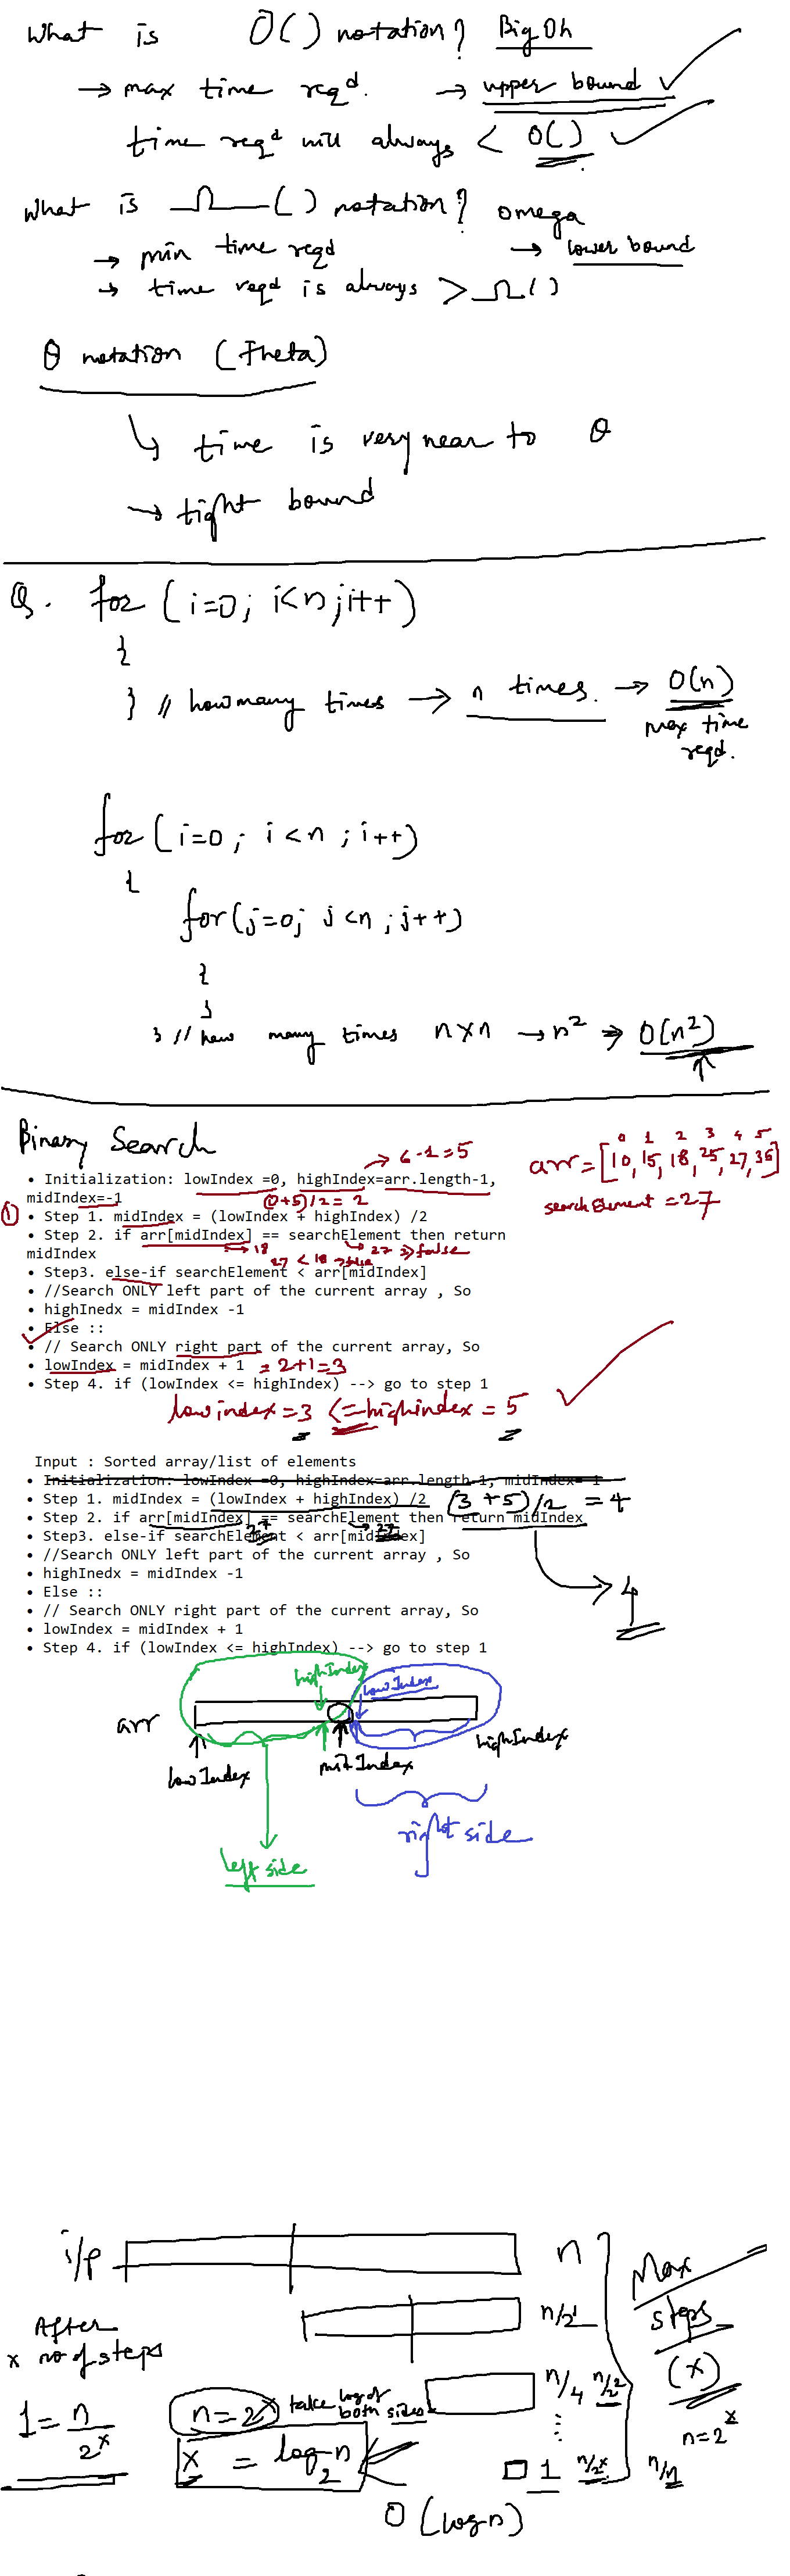 What is O( ) notation? Big Oh
→ max time reqd. → upper bound ✓
time reqd will always < O( ) ✓
What is Ω( ) notation? omega
→ min time reqd → lower bound
→ time reqd is always > Ω( )
θ notation (Theta)
↳ time is very near to θ
→ tight bound
Q. for (i=0; i<n; i++)
{
} // how many times → n times. → O(n)
max time
reqd.
for (i=0; i<n; i++)
{
for(j=0; j<n; j++)
{
}
} // how many times n×n → n² ⇒ O(n²)
Binary Search
→ 6-1=5
0 1 2 3 4 5
arr = [10, 15, 18, 25, 27, 36]
• Initialization: lowIndex =0, highIndex=arr.length-1,
midIndex=-1
(0+5)/2 = 2
searchElement = 27
① • Step 1. midIndex = (lowIndex + highIndex) /2
• Step 2. if arr[midIndex] == searchElement then return
midIndex
→ 18 → 27 ⇒ false
27 < 18 → false
• Step3. else-if searchElement < arr[midIndex]
• //Search ONLY left part of the current array , So
• highInedx = midIndex -1
• Else ::
• // Search ONLY right part of the current array, So
• lowIndex = midIndex + 1 = 2+1=3
• Step 4. if (lowIndex <= highIndex) --> go to step 1
lowindex = 3 <= highindex = 5 ✓
Input : Sorted array/list of elements
• Initialization: lowIndex =0, highIndex=arr.length-1, midIndex=-1
• Step 1. midIndex = (lowIndex + highIndex) /2 (3+5)/2 = 4
• Step 2. if arr[midIndex] == searchElement then return midIndex
27 → 27
• Step3. else-if searchElement < arr[midIndex]
• //Search ONLY left part of the current array , So
• highInedx = midIndex -1
→ 4
• Else ::
• // Search ONLY right part of the current array, So
• lowIndex = midIndex + 1
• Step 4. if (lowIndex <= highIndex) --> go to step 1
highIndex
lowIndex
arr
lowIndex midIndex highIndex
right side
left side
i/p n
Max
steps
(x)
n/2¹
After
x no of steps
n/4 n/2²
1 = n/2ˣ
n = 2ˣ take log of
both sides
n=2ˣ
x = log₂n
1 n/2ˣ n/n
O(log n)